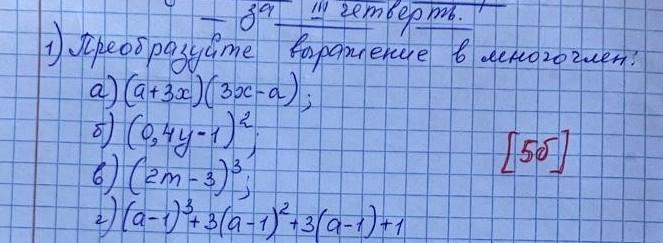 за III четверть.
1) Преобразуйте выражение в многочлен:
а) (a+3x)(3x-a);
б) (0,4y-1)²;
в) (2m-3)³;
[5б]
г) (a-1)³+3(a-1)²+3(a-1)+1